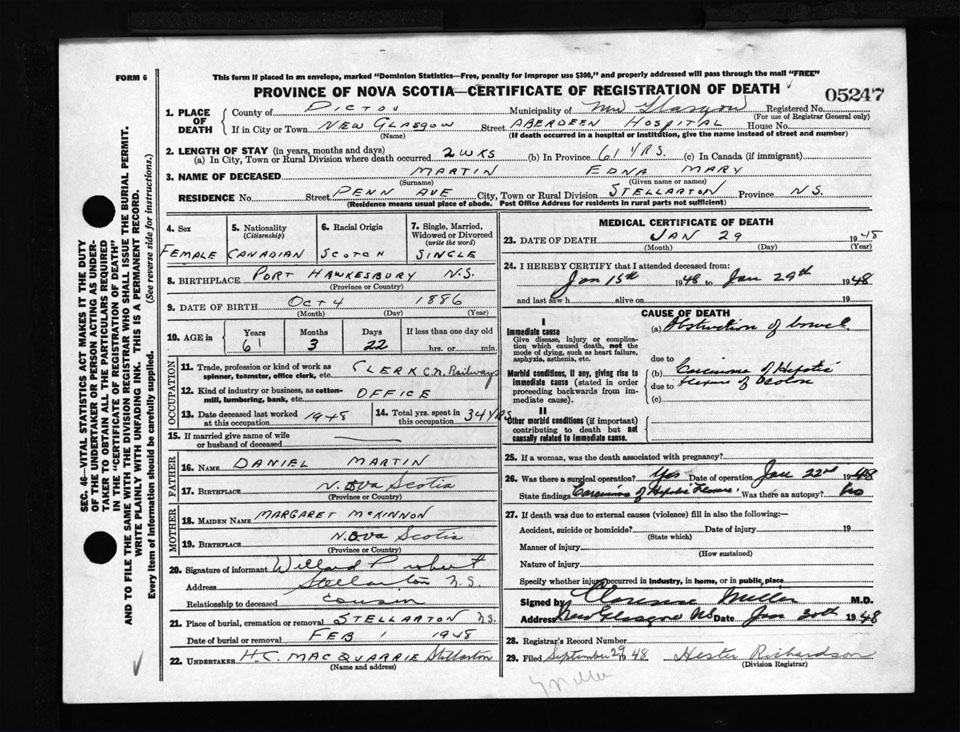 FORM 6
This form if placed in an envelope, marked "Dominion Statistics—Free, penalty for improper use $300," and properly addressed will pass through the mail "FREE"
PROVINCE OF NOVA SCOTIA—CERTIFICATE OF REGISTRATION OF DEATH
05247
1. PLACE OF DEATH County of PICTOU Municipality of New Glasgow Registered No.
(For use of Registrar General only)
If in City or Town NEW GLASGOW Street ABERDEEN HOSPITAL House No.
(Name) (If death occurred in a hospital or institution, give the name instead of street and number)
2. LENGTH OF STAY (in years, months and days)
(a) In City, Town or Rural Division where death occurred 2 WKS (b) In Province 61 YRS. (c) In Canada (if immigrant)
3. NAME OF DECEASED MARTIN EDNA MARY
(Surname) (Given name or names)
RESIDENCE No. Street PENN AVE City, Town or Rural Division STELLARTON Province N.S.
(Residence means usual place of abode. Post Office Address for residents in rural parts not sufficient)
SEC. 46—VITAL STATISTICS ACT MAKES IT THE DUTY
OF THE UNDERTAKER OR PERSON ACTING AS UNDER-
TAKER TO OBTAIN ALL THE PARTICULARS REQUIRED
IN THE "CERTIFICATE OF REGISTRATION OF DEATH"
AND TO FILE THE SAME WITH THE DIVISION REGISTRAR WHO SHALL ISSUE THE BURIAL PERMIT.
WRITE PLAINLY WITH UNFADING INK. THIS IS A PERMANENT RECORD.
Every item of information should be carefully supplied. (See reverse side for instructions.)
4. Sex 5. Nationality (Citizenship) 6. Racial Origin 7. Single, Married, Widowed or Divorced (write the word)
FEMALE CANADIAN SCOTCH SINGLE
8. BIRTHPLACE PORT HAWKESBURY N.S.
(Province or Country)
9. DATE OF BIRTH OCT 4 1886
(Month) (Day) (Year)
10. AGE in Years Months Days If less than one day old
61 3 22 hrs. or min.
OCCUPATION
11. Trade, profession or kind of work as spinner, teamster, office clerk, etc. CLERK C.N. Railways
12. Kind of industry or business, as cotton-mill, lumbering, bank, etc. OFFICE
13. Date deceased last worked at this occupation 1948 14. Total yrs. spent in this occupation 34 YRS
15. If married give name of wife or husband of deceased
FATHER
16. NAME DANIEL MARTIN
17. BIRTHPLACE NOVA SCOTIA
(Province or Country)
MOTHER
18. MAIDEN NAME MARGARET MCKINNON
19. BIRTHPLACE NOVA SCOTIA
(Province or Country)
20. Signature of informant Willard Probert
Address Stellarton N.S.
Relationship to deceased cousin
21. Place of burial, cremation or removal STELLARTON N.S.
Date of burial or removal FEB 1 1948
22. UNDERTAKER H.C. MACQUARRIE Stellarton
(Name and address)
MEDICAL CERTIFICATE OF DEATH
23. DATE OF DEATH JAN 29 1948
(Month) (Day) (Year)
24. I HEREBY CERTIFY that I attended deceased from:
Jan 15th 1948 to Jan 29th 1948
and last saw h alive on 19
CAUSE OF DEATH
I
Immediate cause
Give disease, injury or complication which caused death, not the mode of dying, such as heart failure, asphyxia, asthenia, etc.
(a) Obstruction of bowel
due to
Morbid conditions, if any, giving rise to immediate cause (stated in order proceeding backwards from immediate cause).
(b) Carcinoma of Hepatic
due to flexure of colon
(c)
II
Other morbid conditions (if important) contributing to death but not causally related to immediate cause.
25. If a woman, was the death associated with pregnancy?
26. Was there a surgical operation? Yes Date of operation Jan 22nd 1948
State findings Carcinoma of Hepatic Flexure. Was there an autopsy? No
27. If death was due to external causes (violence) fill in also the following:—
Accident, suicide or homicide? Date of injury 19
(State which)
Manner of injury
(How sustained)
Nature of injury
Specify whether injury occurred in industry, in home, or in public place
Signed by Clarence Miller M.D.
Address New Glasgow NS Date Jan 30th 1948
28. Registrar's Record Number
29. Filed September 29 1948 Hester Richardson
(Division Registrar)
Miller